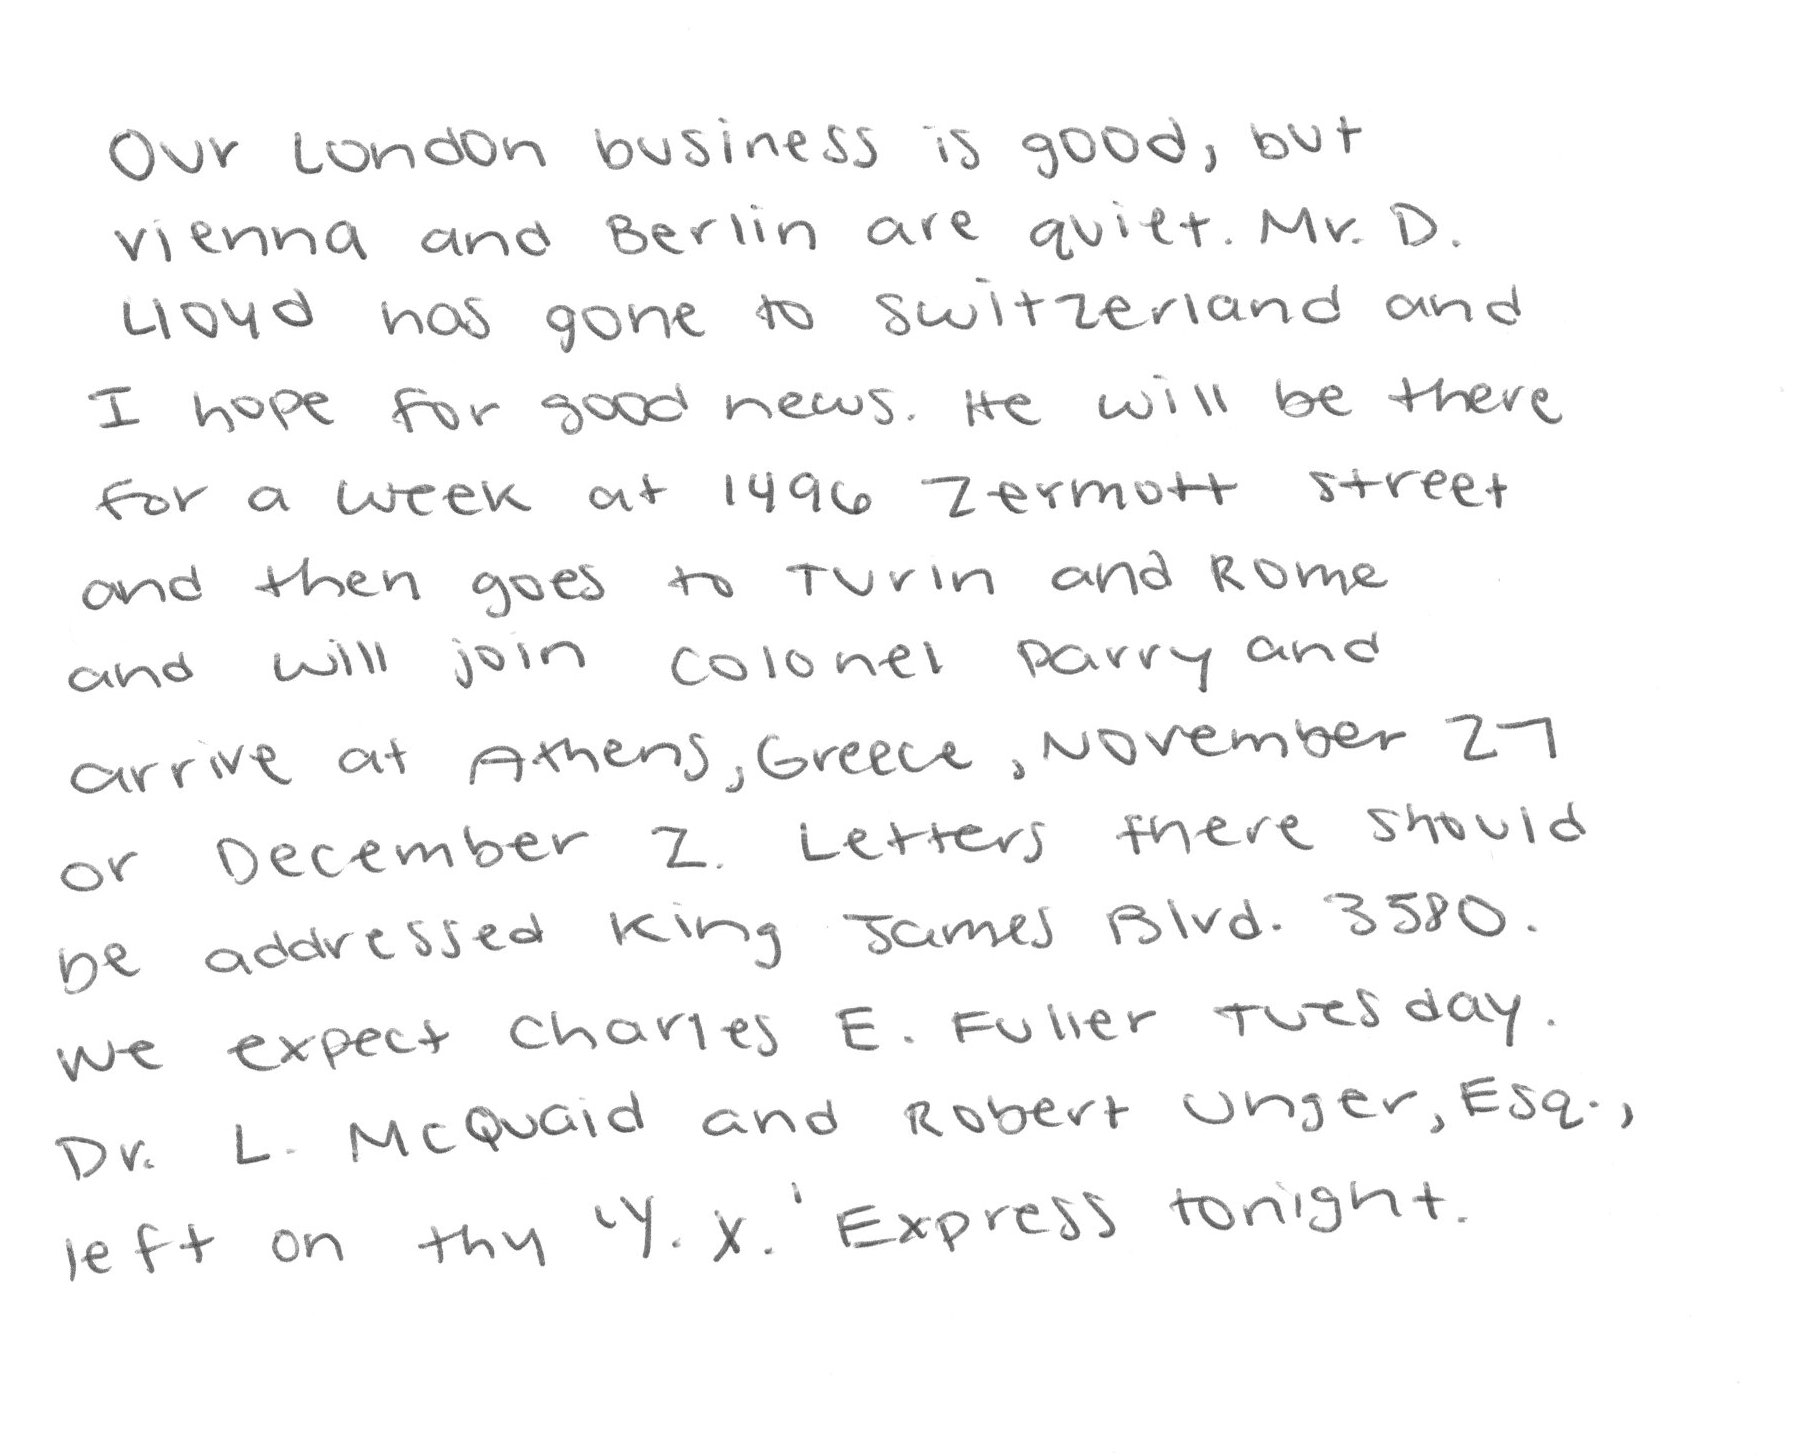 Our London business is good, but
Vienna and Berlin are quiet. Mr. D.
Lloyd has gone to Switzerland and
I hope for good news. He will be there
for a week at 1496 Zermott street
and then goes to Turin and Rome
and will join Colonel Parry and
arrive at Athens, Greece, November 27
or December 2. Letters there should
be addressed King James Blvd. 3580.
We expect Charles E. Fuller Tuesday.
Dr. L. McQuaid and Robert Unger, Esq.,
left on thy 'Y. X.' Express tonight.